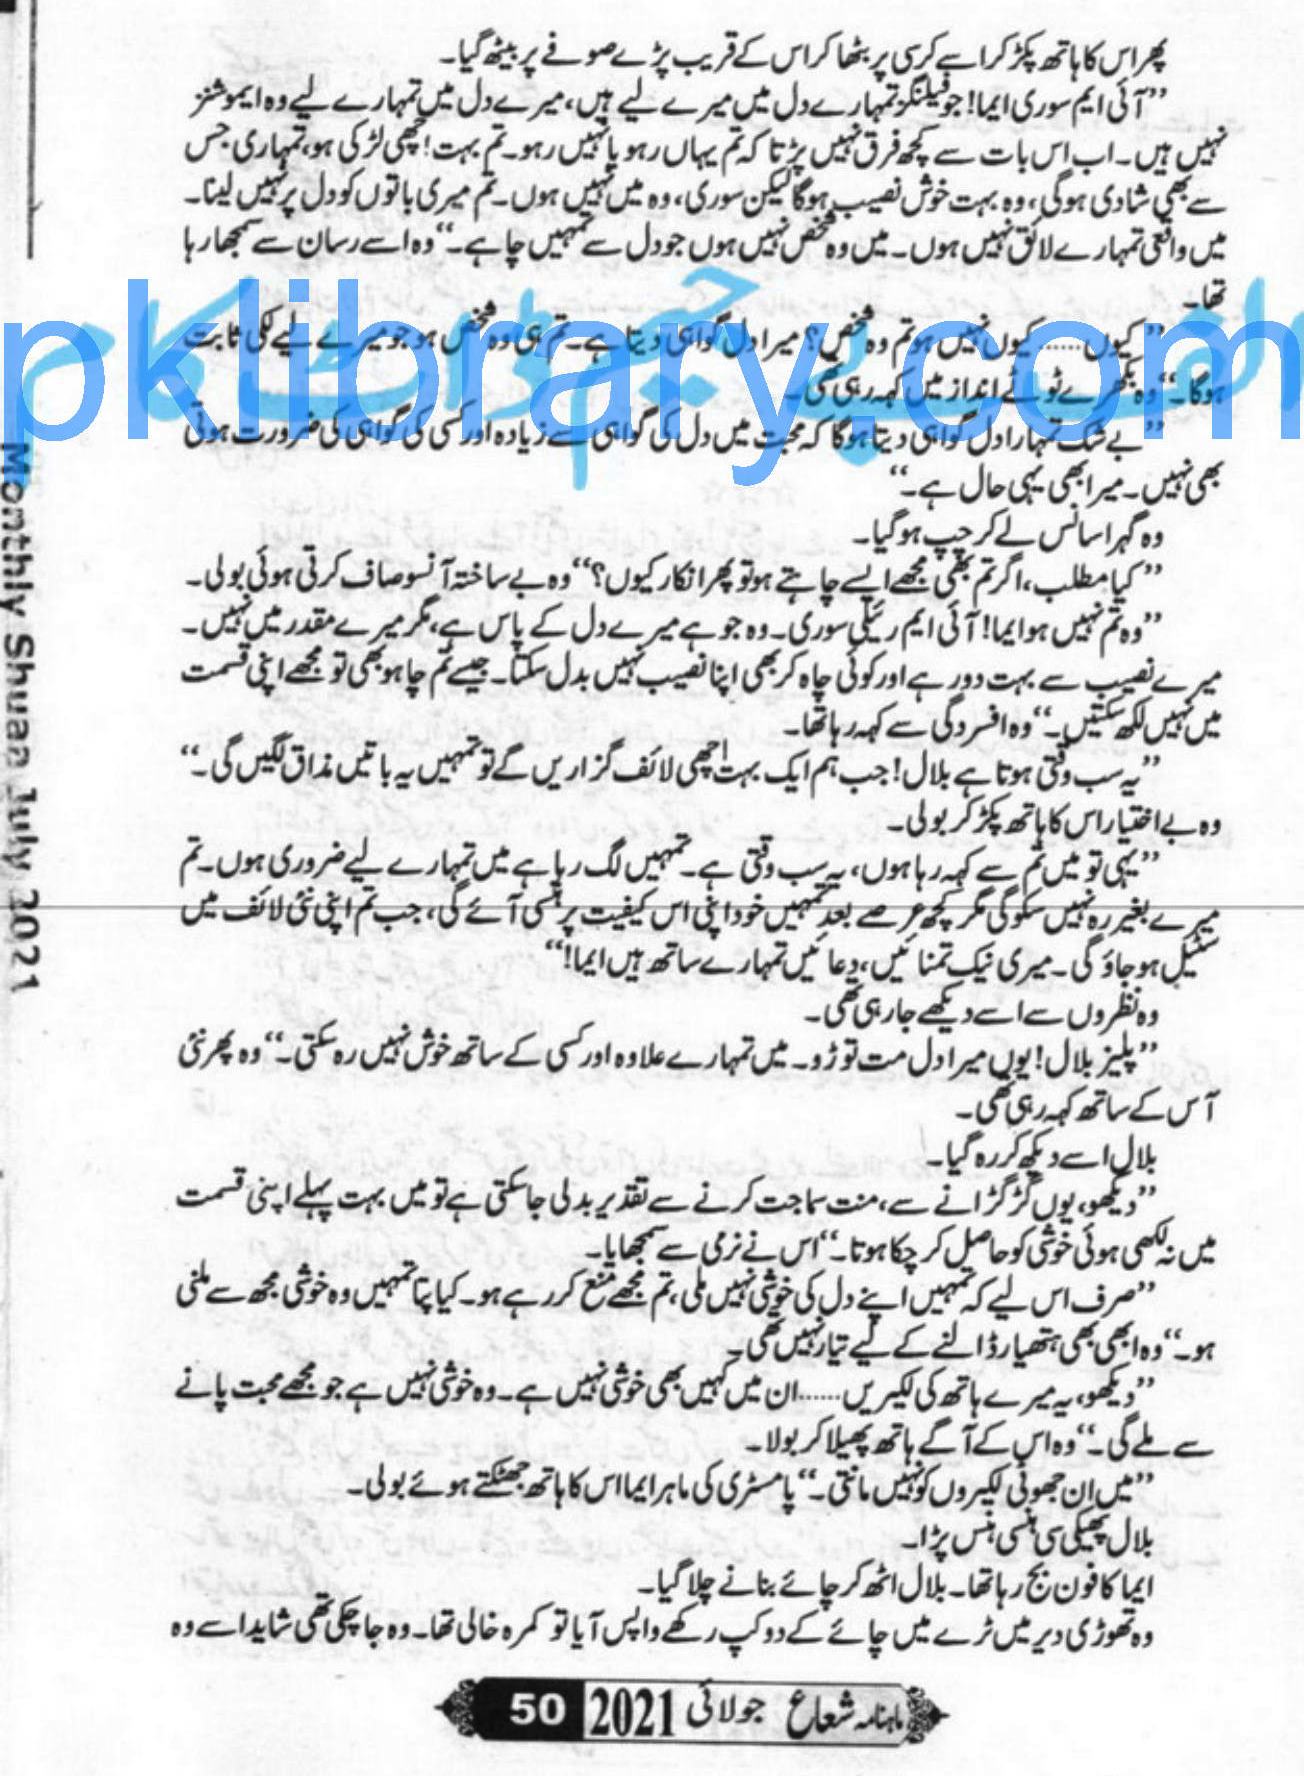 پھر اس کا ہاتھ پکڑ کر اسے کرسی پر بٹھا کر اس کے قریب پڑے صوفے پر بیٹھ گیا۔
’’آئی ایم سوری ایما! جو فیلنگز تمہارے دل میں میرے لیے ہیں، میرے دل میں تمہارے لیے وہ ایموشنز
نہیں ہیں۔ اب اس بات سے کچھ فرق نہیں پڑتا کہ تم یہاں رہو یا نہیں رہو۔ تم بہت اچھی لڑکی ہو، تمہاری جس
سے بھی شادی ہوگی، وہ بہت خوش نصیب ہوگا لیکن سوری، وہ میں نہیں ہوں۔ تم میری باتوں کو دل پر نہیں لینا۔
میں واقعی تمہارے لائق نہیں ہوں۔ میں وہ شخص نہیں ہوں جو دل سے تمہیں چاہے۔‘‘ وہ اسے رسان سے سمجھا رہا
تھا۔
’’کیوں...... کیوں نہیں ہو تم وہ شخص؟ میرا دل گواہی دیتا ہے۔ تم ہی وہ شخص ہو جو میرے لیے لکی ثابت
ہوگا۔‘‘ وہ بکھرے ٹوٹے انداز میں کہہ رہی تھی۔
’’بے شک تمہارا دل گواہی دیتا ہوگا کہ محبت میں دل کی گواہی سے زیادہ اور کسی کی گواہی کی ضرورت ہوتی
بھی نہیں۔ میرا بھی یہی حال ہے۔‘‘
وہ گہرا سانس لے کر چپ ہو گیا۔
’’کیا مطلب، اگر تم بھی مجھے ایسے چاہتے ہو تو پھر انکار کیوں؟‘‘ وہ بے ساختہ آنسو صاف کرتی ہوئی بولی۔
’’وہ تم نہیں ہو ایما! آئی ایم رئیلی سوری۔ وہ جو ہے میرے دل کے پاس ہے، مگر میرے مقدر میں نہیں۔
میرے نصیب سے بہت دور ہے اور کوئی چاہ کر بھی اپنا نصیب نہیں بدل سکتا۔ جیسے تم چاہو بھی تو مجھے اپنی قسمت
میں نہیں لکھ سکتیں۔‘‘ وہ افسردگی سے کہہ رہا تھا۔
’’یہ سب وقتی ہوتا ہے بلال! جب ہم ایک بہت اچھی لائف گزاریں گے تو تمہیں یہ باتیں مذاق لگیں گی۔‘‘
وہ بے اختیار اس کا ہاتھ پکڑ کر بولی۔
’’یہی تو میں تم سے کہہ رہا ہوں، یہ سب وقتی ہے۔ تمہیں لگ رہا ہے میں تمہارے لیے ضروری ہوں۔ تم
میرے بغیر رہ نہیں سکو گی مگر کچھ عرصے بعد تمہیں خود اپنی اس کیفیت پر ہنسی آئے گی، جب تم اپنی نئی لائف میں
سیٹل ہو جاؤ گی۔ میری نیک تمنائیں، دعائیں تمہارے ساتھ ہیں ایما!‘‘
وہ نظروں سے اسے دیکھے جا رہی تھی۔
’’پلیز بلال! یوں میرا دل مت توڑو۔ میں تمہارے علاوہ اور کسی کے ساتھ خوش نہیں رہ سکتی۔‘‘ وہ پھر نئی
آس کے ساتھ کہہ رہی تھی۔
بلال اسے دیکھ کر رہ گیا۔
’’دیکھو، یوں گڑگڑانے سے، منت سماجت کرنے سے تقدیر بدلی جا سکتی ہے تو میں بہت پہلے اپنی قسمت
میں نہ لکھی ہوئی خوشی کو حاصل کر چکا ہوتا۔‘‘ اس نے نرمی سے سمجھایا۔
’’صرف اس لیے کہ تمہیں اپنے دل کی خوشی نہیں ملی، تم مجھے منع کر رہے ہو۔ کیا پتا تمہیں وہ خوشی مجھ سے ملنی
ہو۔‘‘ وہ ابھی بھی ہتھیار ڈالنے کے لیے تیار نہیں تھی۔
’’دیکھو، یہ میرے ہاتھ کی لکیریں...... ان میں کہیں بھی خوشی نہیں ہے۔ وہ خوشی نہیں ہے جو مجھے محبت پانے
سے ملے گی۔‘‘ وہ اس کے آگے ہاتھ پھیلا کر بولا۔
’’میں ان جھوٹی لکیروں کو نہیں مانتی۔‘‘ پامسٹری کی ماہر ایما اس کا ہاتھ جھٹکتے ہوئے بولی۔
بلال پھیکی سی ہنسی ہنس پڑا۔
ایما کا فون بج رہا تھا۔ بلال اٹھ کر چائے بنانے چلا گیا۔
وہ تھوڑی دیر میں ٹرے میں چائے کے دو کپ رکھے واپس آیا تو کمرہ خالی تھا۔ وہ جا چکی تھی شاید اسے وہ
ماہنامہ شعاع جولائی 2021 50
Monthly Shuaa July 2021
pklibrary.com